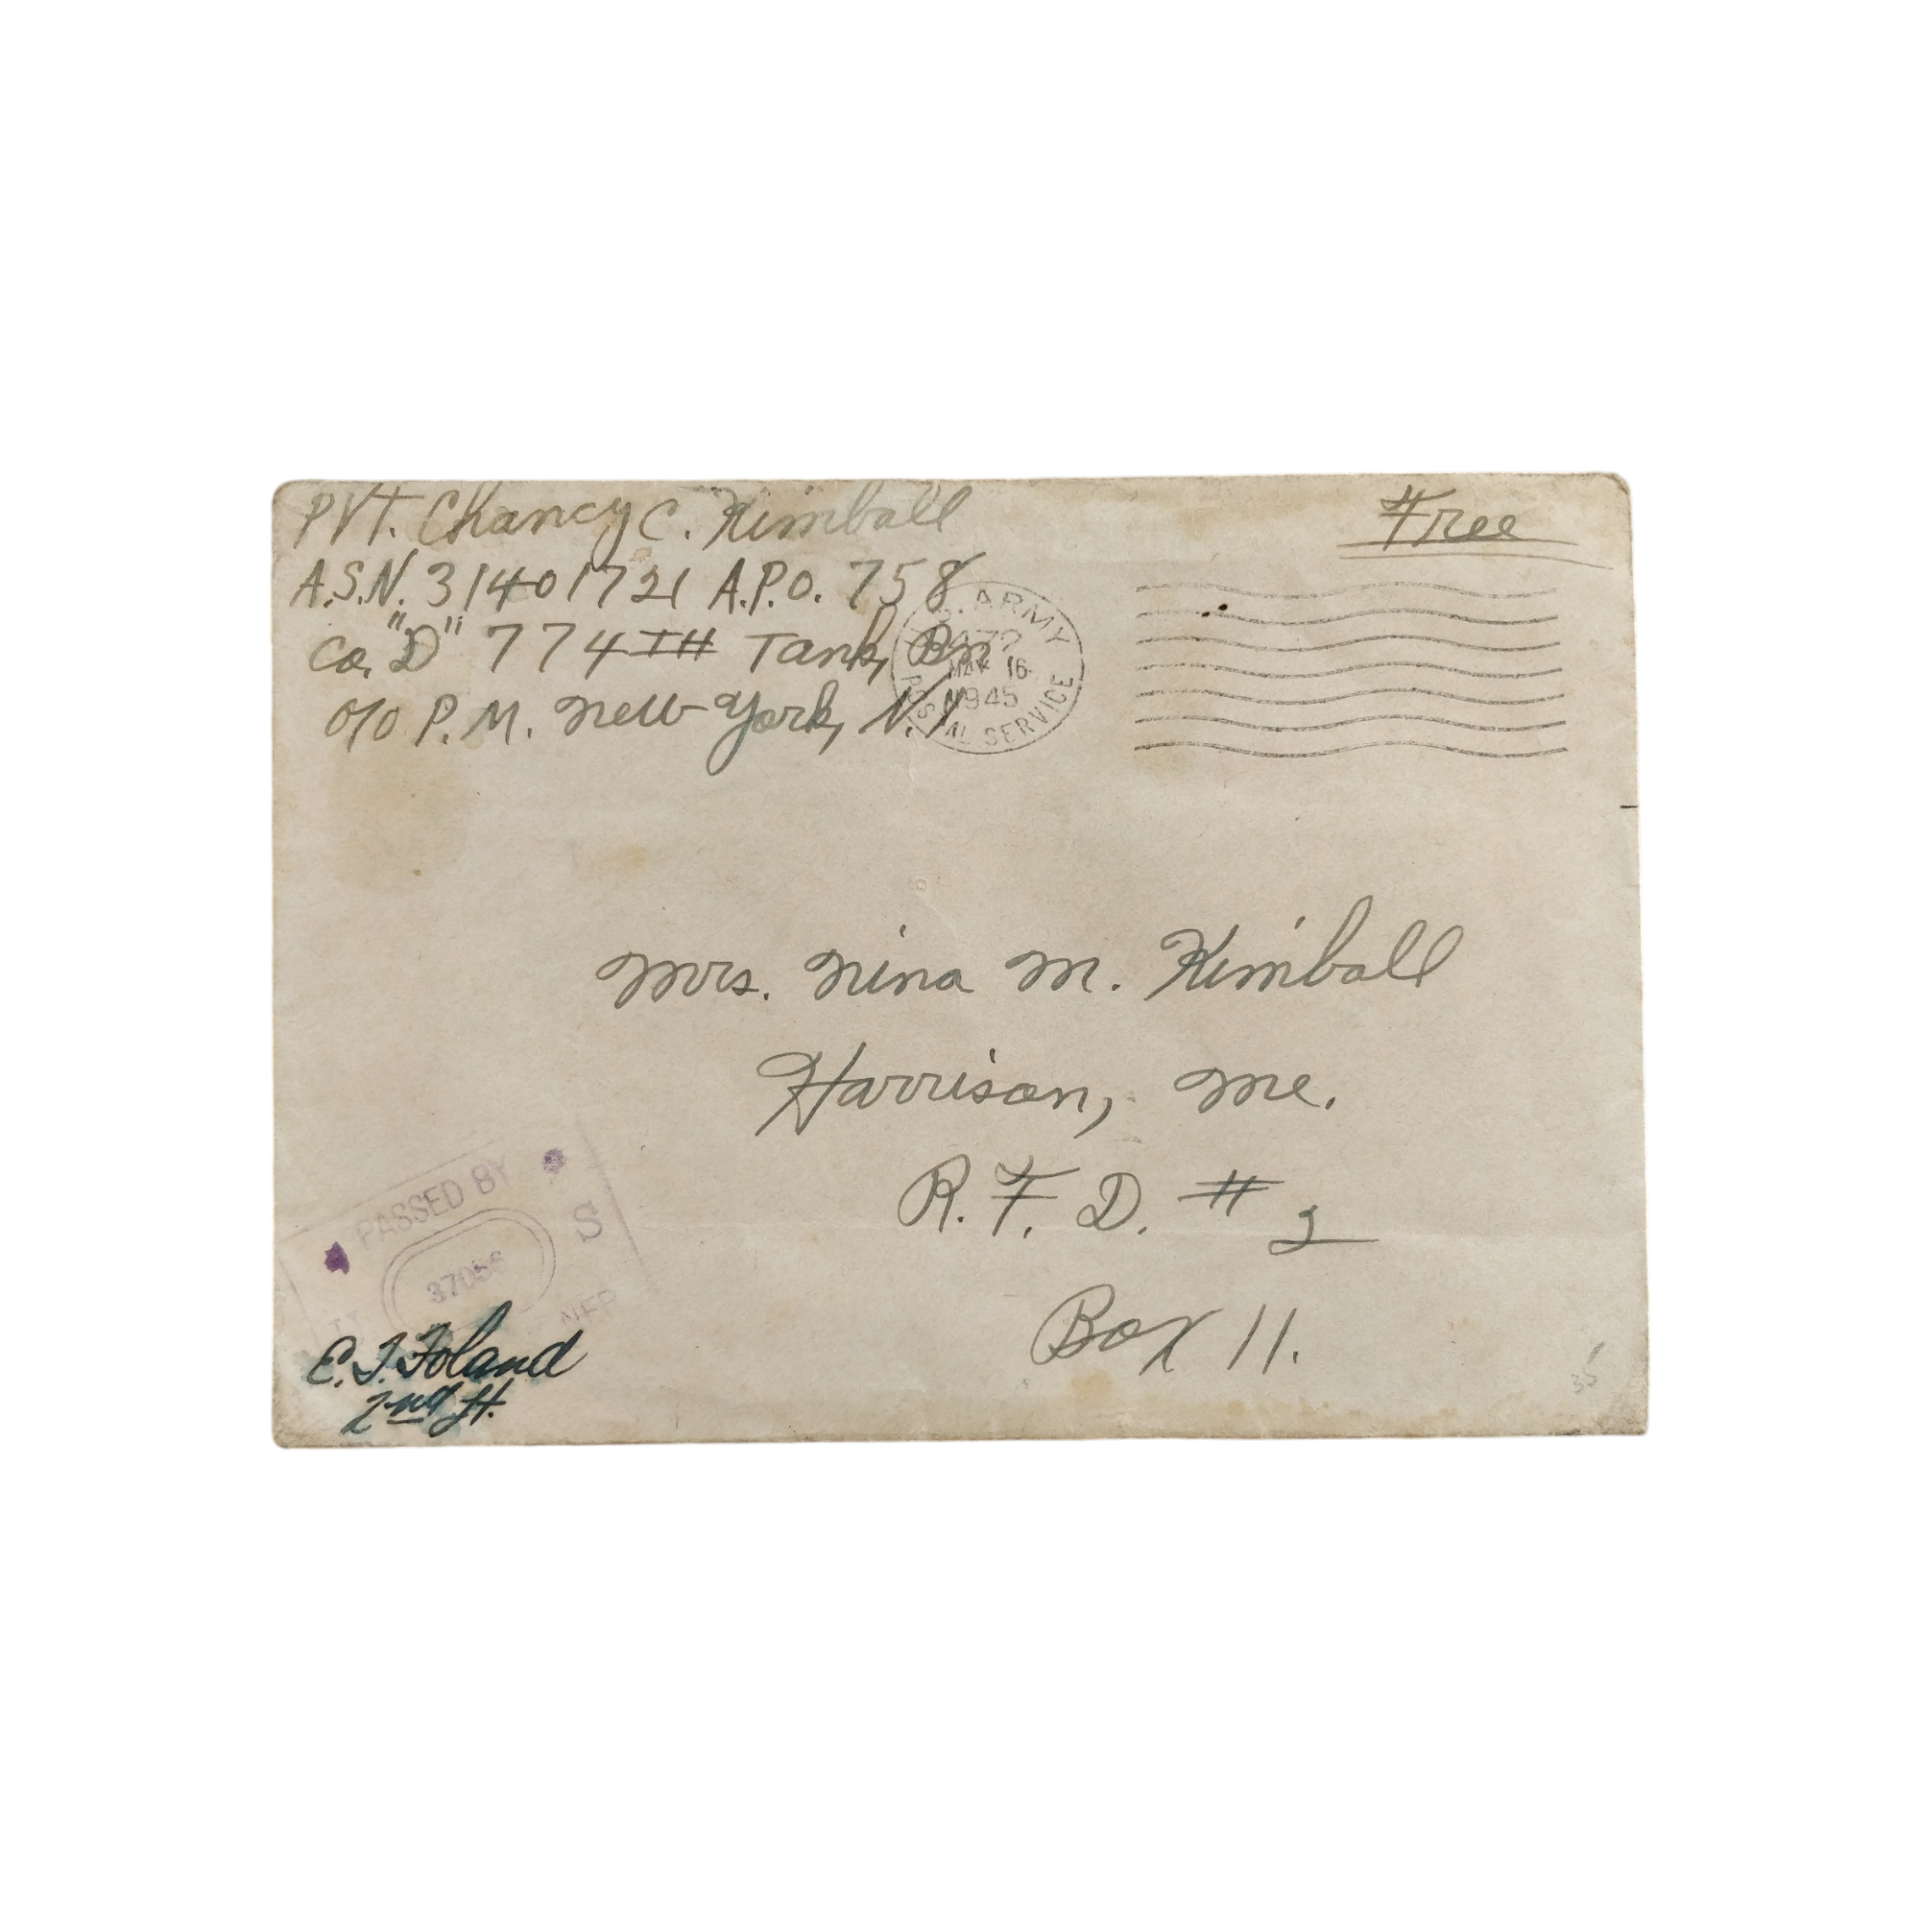 Pvt. Chancy C. Kimball
A.S.N. 31401721 A.P.O. 758
Co. "D" 774TH Tank Bn
c/o P.M. New York, N.Y.
Free
U.S. ARMY
MAR 16
1945
POSTAL SERVICE
Mrs. Nina M. Kimball
Harrison, Me.
R.F.D. # 2
Box 11.
PASSED BY
S
E.J. Foland
2nd Lt.